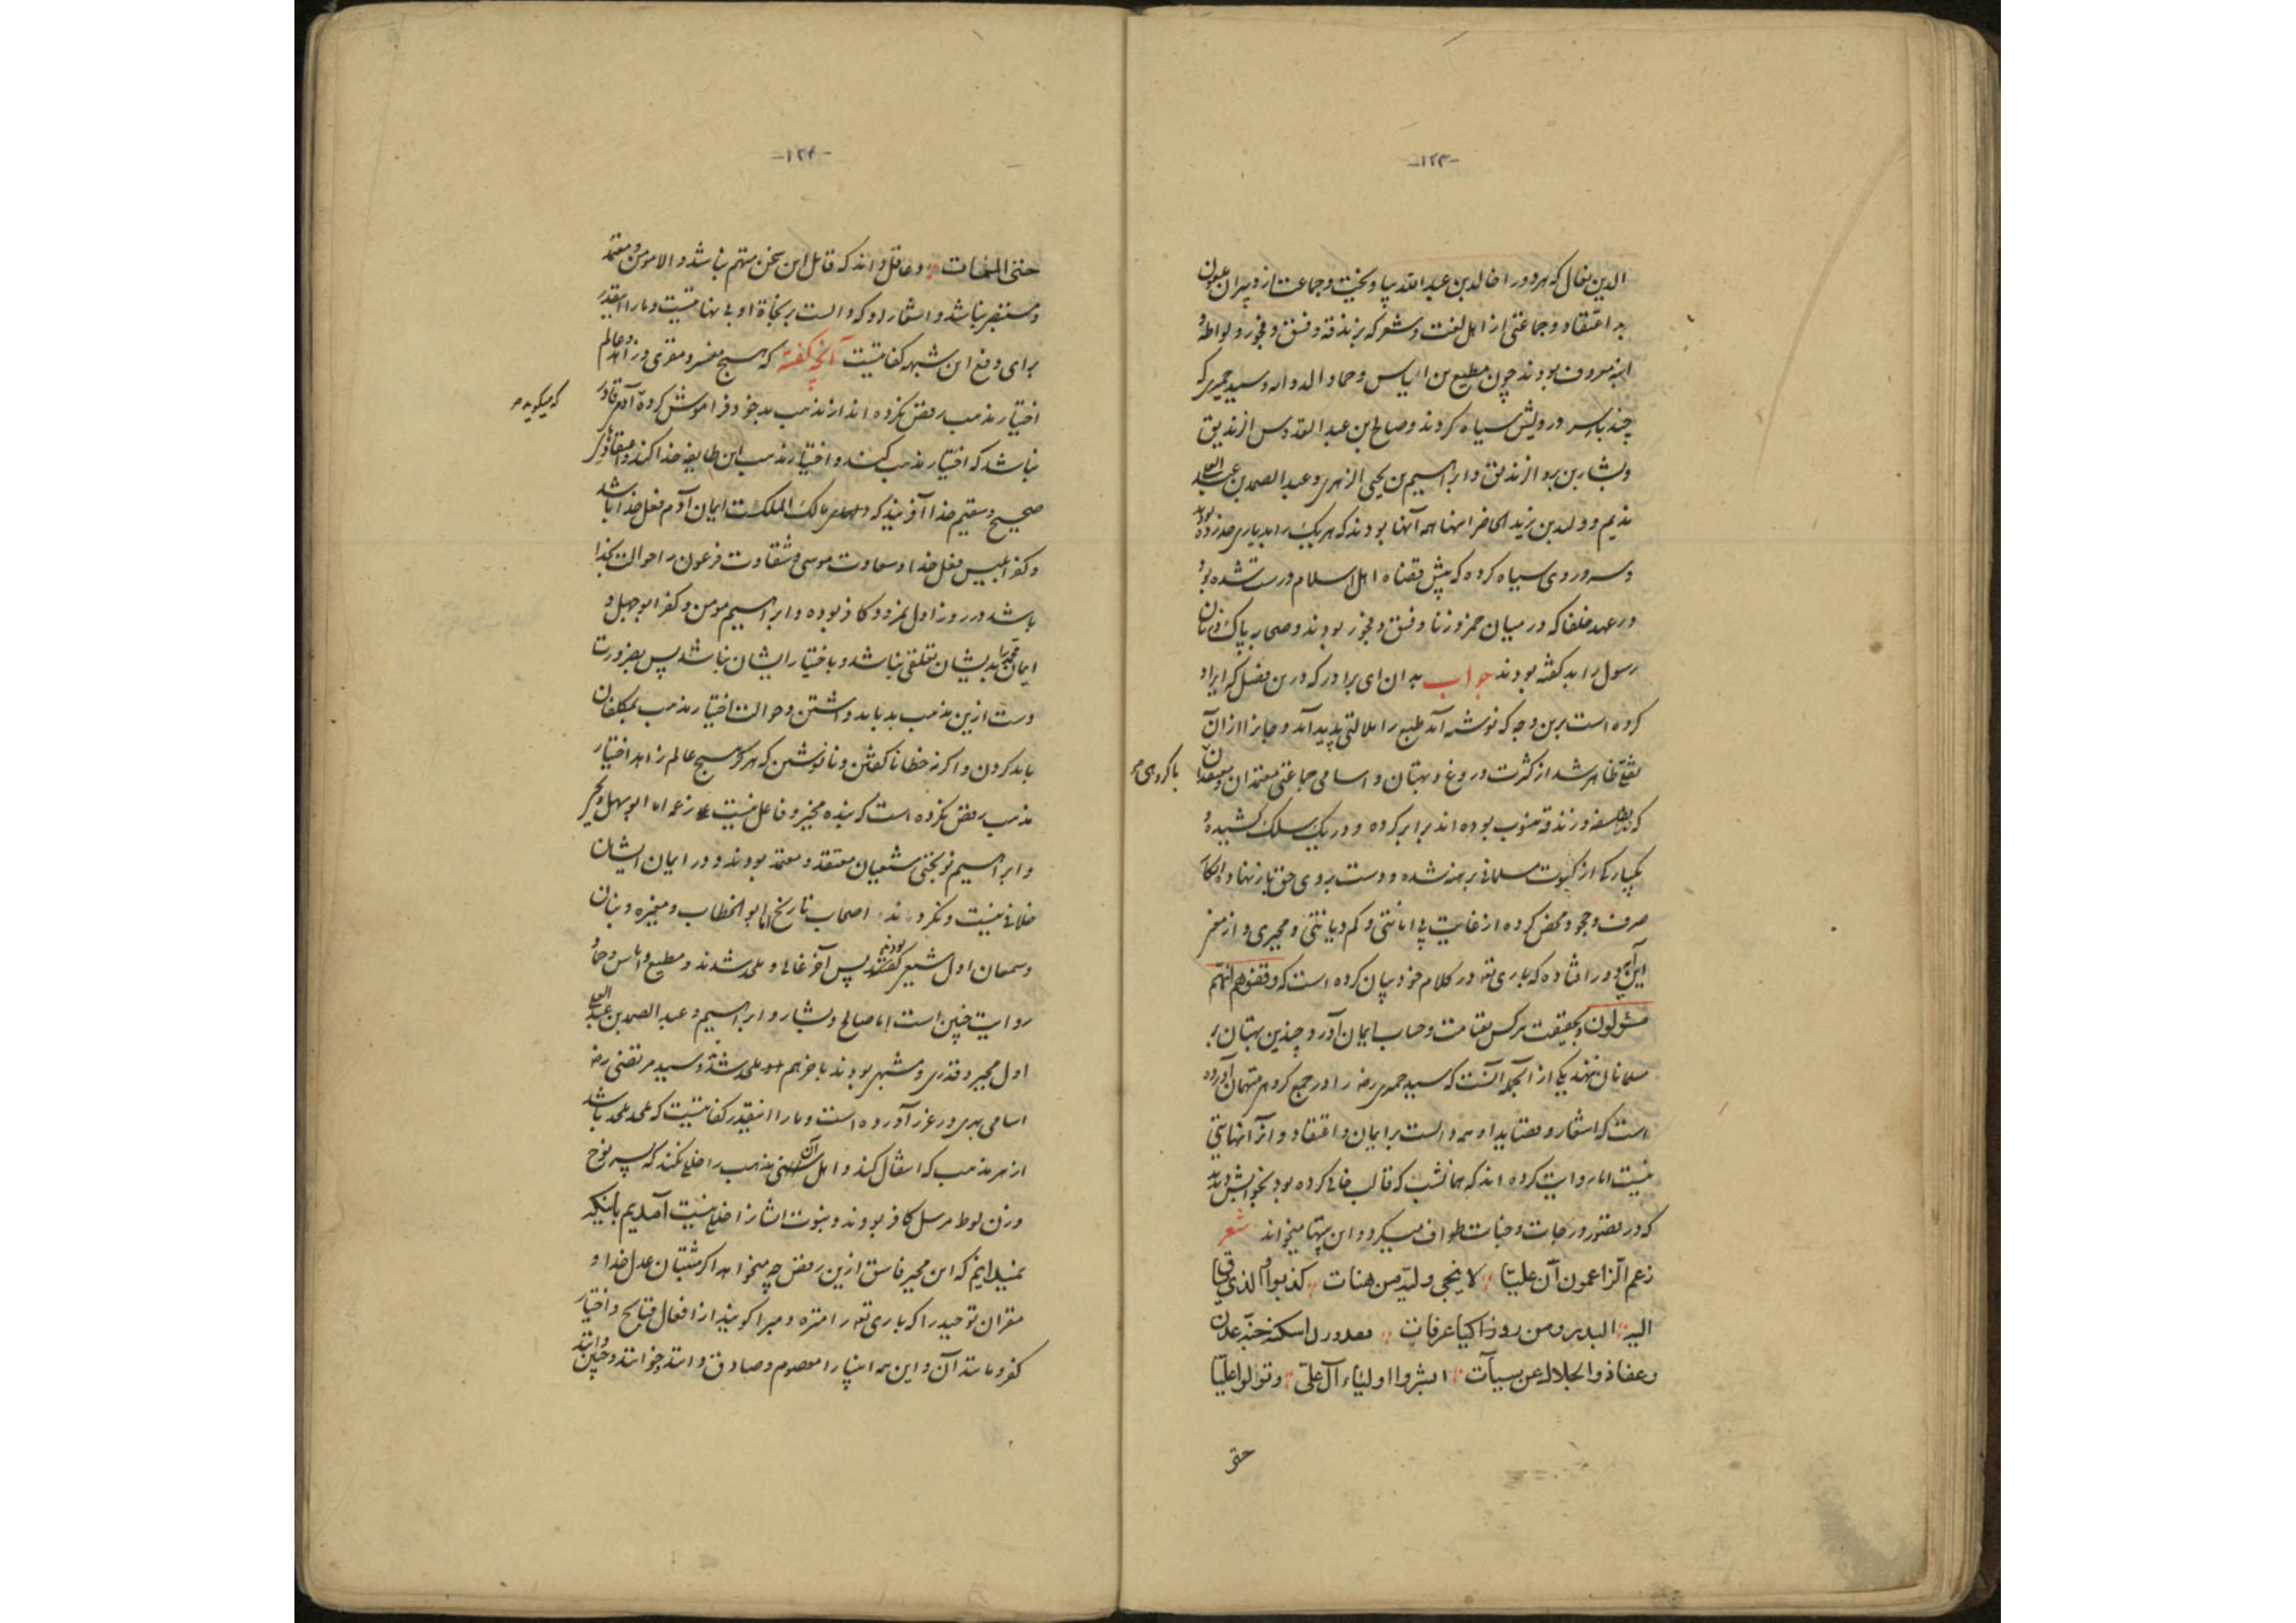 -۱۲۳-
الدین بقال که هر دو را خالد بن عبد الله بیاویخت و جماعت از دبیران
بد اعتقاد و جماعتی از اهل لغت و شعر که بزندقه و فسق و فجور و لواطه و
ابنه معروف بودند چون مطیع بن ایاس و حماد الراویه و سید حمیری که
چند بار سر و رویش سیاه کردند و صالح بن عبد القدوس الزندیق
و بشار بن برد الزندیق و ابراهیم بن یحیی الزهری و عبد الصمد بن عبد الاعلی
ندیم ولید بن یزید اینها همه آنها بودند که هر یک را بدیاری حد زده بودند
و سر و روی سیاه کرده که پیش قضاة اهل اسلام درست شده بود
در عهد خلفا که در میان خمر و زنا و فسق و فجور بودند و صحابه پاک و زنان
رسول را بد گفته بودند جواب بدان ای برادر که درین فصل که ایراد
کرده است برین وجه که نوشته آمد طبع را ملالتی پدید آمد و
ظاهر شد از کثرت دروغ و بهتان و اسامی جماعتی معتمدان و معتقدان
با گروهی
که بفلسفه و زندقه منسوب بوده اند برابر کرده و در یک سلک کشیده و
یکبارگی از کسوت مسلمانی برهنه شده و دست بروی حق باز نهاده و انکار
صرف و جحود محض کرده از غایت بی امانتی و کم دیانتی و مجبری و از مغز
این آیه دور افتاده که باری تع در کلام خود بیان کرده است که وقفوهم انهم
مسئولون و بحقیقت هر کس بقیامت و حساب ایمان آورد چندین بهتان بر
مسلمانان ننهد یکی از آنجمله آنست که سید حمیری رضه را در جمع گروهی متهمان آورده
است که اشعار و قصاید او همه دالست بر ایمان و اعتقاد و آنرا نهایتی
نیست اما روایت کرده اند که همانشب که قالب خالی کرده بود بخوابش دیدند
که در قصور و درجات و جنات طواف میکرد و این بیتها میخواند شعر
زعم الزاعمون ان علیّا ؞ لا ینجی ولیه من هنات ؞ کذبوا و الذی
الیه البدن و من زار راکبا عرفات ؞
و عفا ذو الجلال عن سیآت ؞ ابشروا اولیاء آل علی ؞ و توالوا علیّا
حتی
-۱۲۴-
حتی الممات ؞ و عاقل داند که قایل این سخن متهم نباشد و الا مومن و معتمد
و مستبصر نباشد و اشعار او که دالست بر نجاة او بی نهایتست و ما را اینقدر
برای دفع این شبهه کفایتست آنچه گفته که هیچ مفسر و مقری و زاهد و عالم
اختیار مذهب رفض نکرده اند از مذهب بد خود فراموش کرده
که میگوید
نباشد که اختیار مذهب کند و اختیار مذهب این طایفه خدا کند و اعتقاد
صحیح و سقیم خدا آفریند که مالک الملکست ایمان آدم فعل خدا باشد
و کفر ابلیس فعل خدا و سعادت موسی و شقاوت فرعون را حوالت بخدا
باشد در روز اول نمرود کافر بوده و ابراهیم مومن و کفر ابوجهل و
ایمان محمد را بدیشان تعلقی نباشد و باختیار ایشان نباشد پس بضرورت
دست ازین مذهب بد بباید داشتن و حوالت اختیار مذهب بمکلفان
باید کردن و اگر نه خطا ناگفتن و نانوشتن که هرگز هیچ عالم زاهد اختیار
مذهب رفض نکرده است که بنده مخیر و فاعل نیست
و ابراهیم نوبختی شیعیان معتقد و معتمد بودند و در ایمان ایشان
خلافی نیست اصحاب تاریخ اما ابو الخطاب و مغیره و بنان
و سمعان اول شیعی بودند پس آخر غالی و ملحد شدند و مطیع و ایاس و حماد
روایت چنین است اما صالح و بشار و ابراهیم و عبد الصمد بن عبد الاعلی
اول مجبر و قدری و مشبهی بودند باخر هم ملحد شدند و سید مرتضی رضه
اسامی همه در غرر آورده است و ما را اینقدر کفایتست که ملحد ملحد باشد
از هر مذهب که انتقال کند و اهل آن مذهب را خللی نکند که پسر نوح
و زن لوط مرسل کافر بودند و نبوت ایشانرا خللی نیست آمدیم باینکه
نمیدانیم که این مجبر فاسق ازین رفض چه میخواهد اگر مثبتان عدل خدا و
مقران توحید را که باری تع را منزه و مبرا گویند از افعال قبایح و اختیار
کفر و مانند آن و این همه انبیا را معصوم و صادق دانند و خوانند